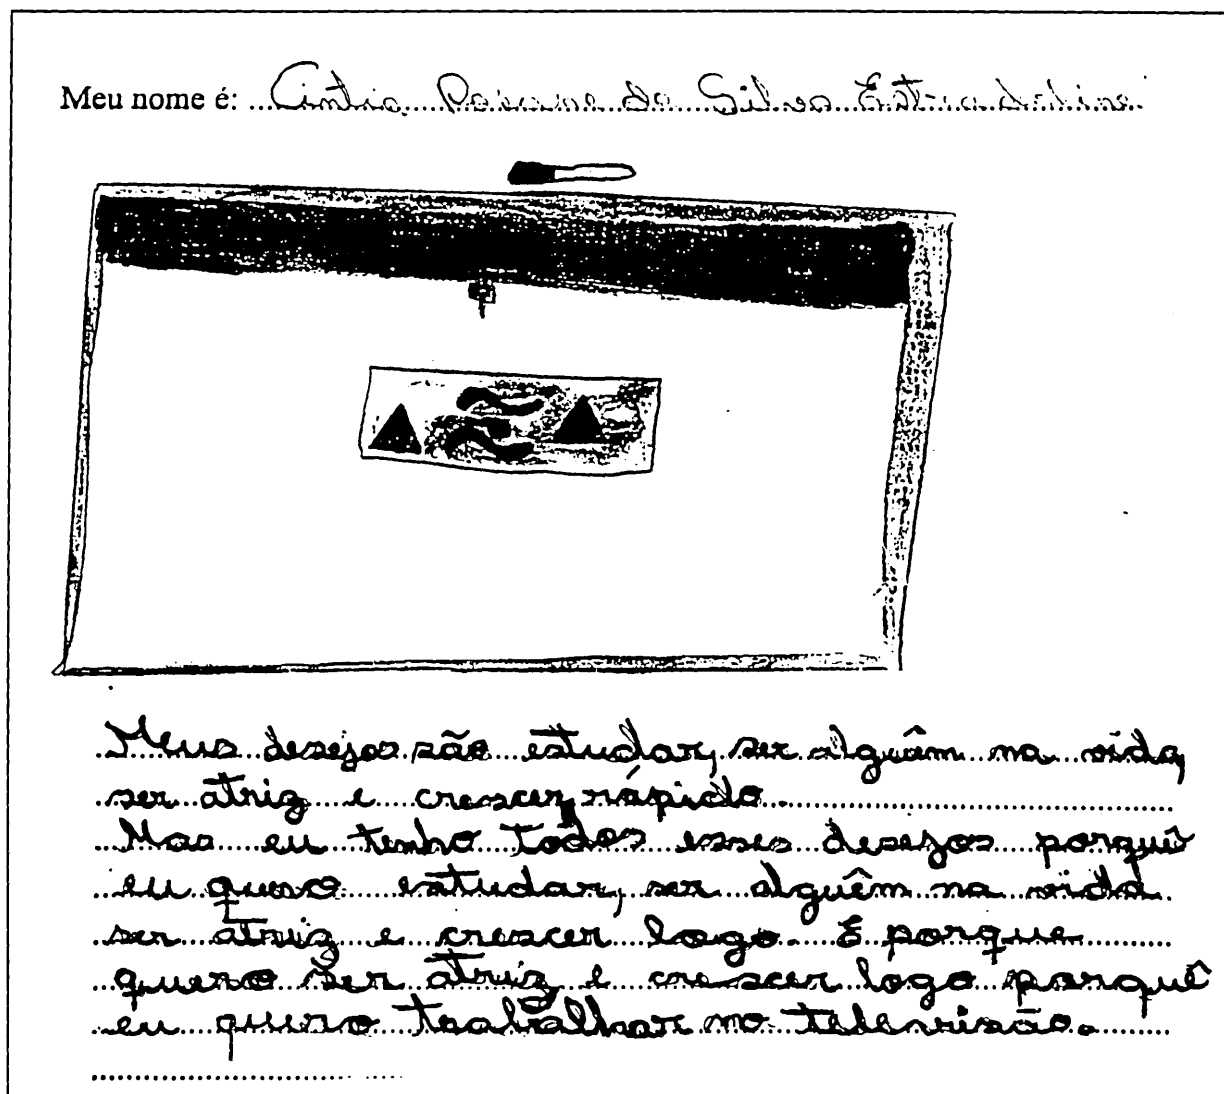 Meu nome é: Cintia da Silva
Meus desejos são estudar, ser alguêm na vida,
ser atriz e crescer rápido.
Mas eu tenho todos esses desejos porquê
eu quero estudar, ser alguêm na vida
ser atriz e crescer logo. E porque
quero ser atriz e crescer logo porquê
eu quero trabalhar na televisão.